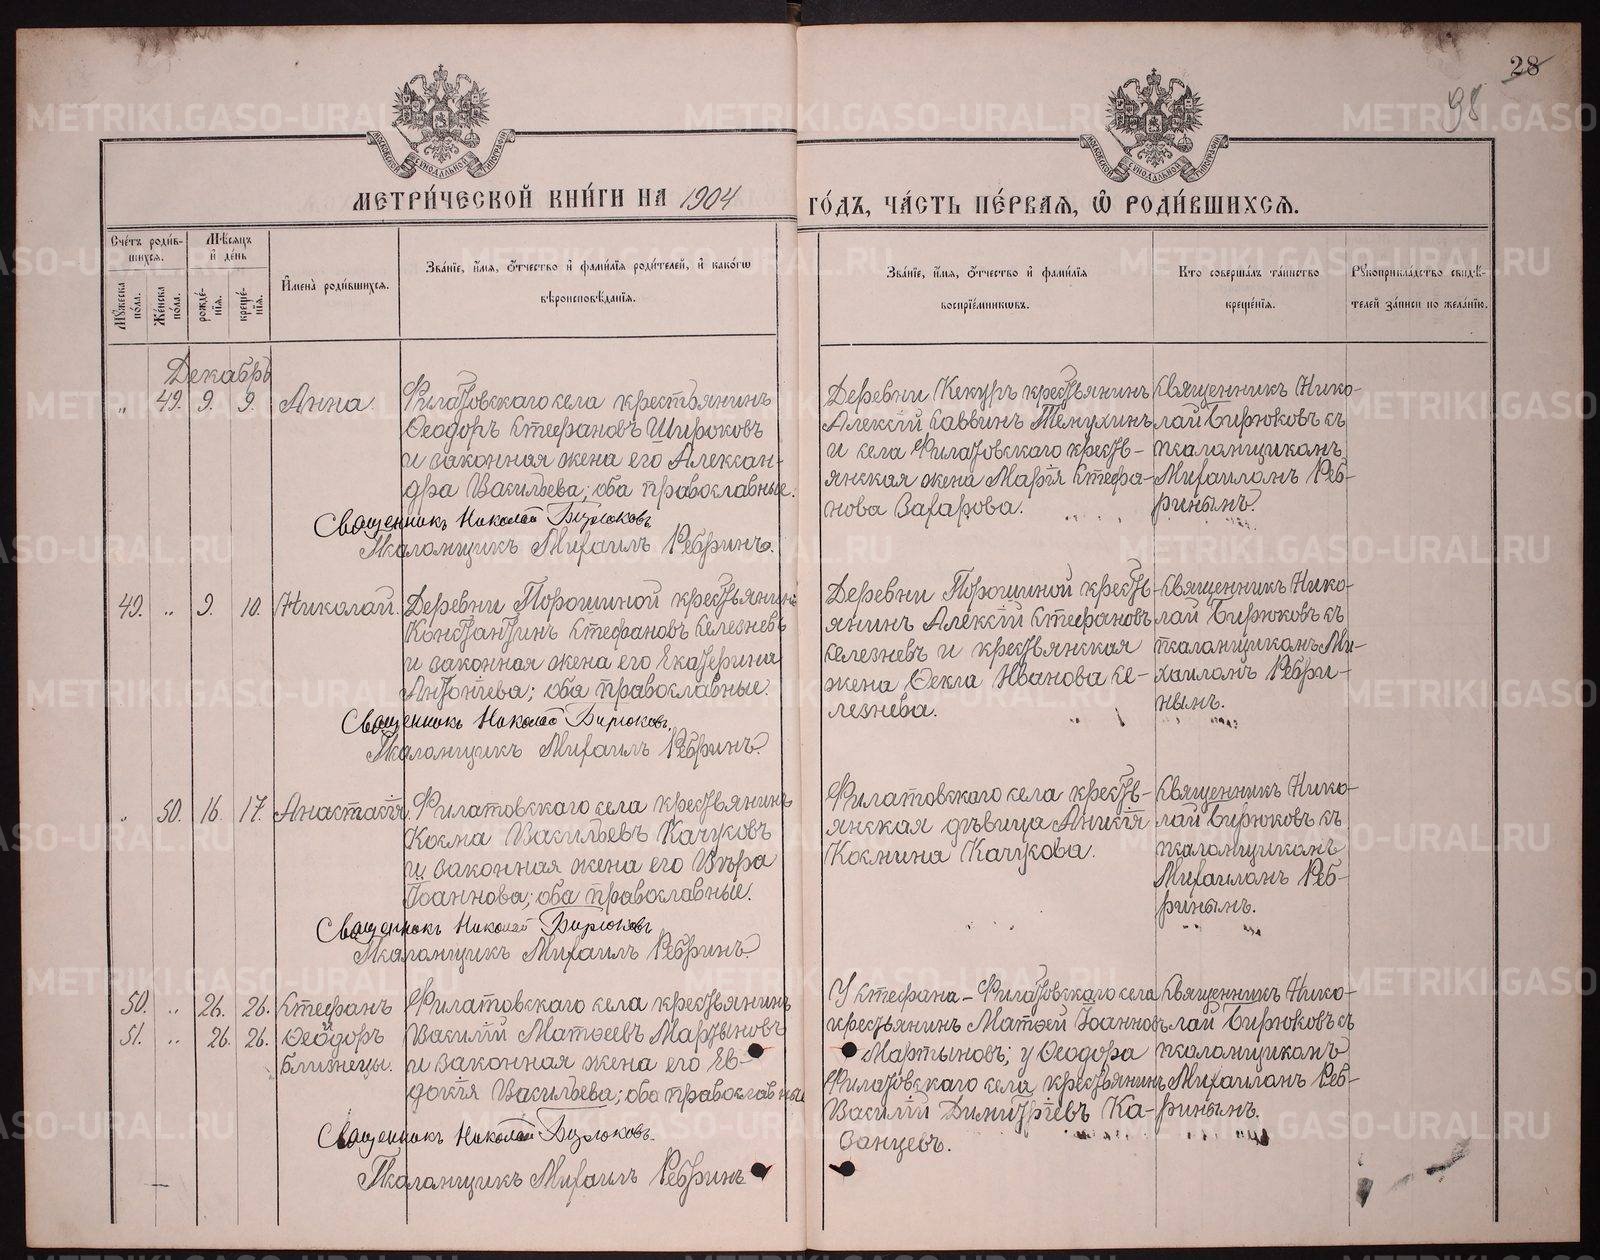 28
98
МОСКОВСКОЙ СѴНОДАЛЬНОЙ ТИПОГРАФІИ
МОСКОВСКОЙ СѴНОДАЛЬНОЙ ТИПОГРАФІИ
МЕТРИ́ЧЕСКОЙ КНИ́ГИ НА 1904 ГО́ДЪ, ЧА́СТЬ ПЕ́РВАѦ, Ѿ РОДИ́ВШИХСѦ.
Сче́тъ роди́в-
шихся.
Мѣ́сяцъ
и де́нь
Му́жеска
по́ла.
Же́нска
по́ла.
рожде́-
нія.
креще́-
нія.
Имена̀ роди́вшихся.
Зва́ніе, и́мя, о́тчество и фами́лія роди́телей, и како́гѡ
вѣроисповѣ́данія.
Зва́ніе, и́мя, о́тчество и фами́лія
воспріе́мникѡвъ.
Кто соверша́лъ та́инство
креще́нія.
Рꙋкоприкла́дство свидѣ́-
телей за́писи по жела́нію.
Декабрь
„ 49. 9. 9. Анна.
Филатовскаго села крестьянинъ
Ѳеодоръ Стефановъ Широковъ
и законная жена его Алексан-
дра Васильева; оба православные.
Священникъ Николай Бирюковъ
Псаломщикъ Михаилъ Ребринъ.
Деревни Кекуръ крестьянинъ
Алексій Саввинъ Тенухинъ
и села Филатовскаго кресть-
янская жена Марія Стефа-
нова Захарова.
Священникъ Нико-
лай Бирюковъ съ
псаломщикомъ
Михаиломъ Реб-
ринымъ.
49. „ 9. 10. Николай.
Деревни Порошиной крестьянинъ
Константинъ Стефановъ Селезневъ
и законная жена его Екатерина
Антоніева; оба православные.
Священникъ Николай Бирюковъ.
Псаломщикъ Михаилъ Ребринъ.
Деревни Порошиной кресть-
янинъ Алексій Стефановъ
Селезневъ и крестьянская
жена Ѳекла Иванова Се-
лезнева.
Священникъ Нико-
лай Бирюковъ съ
псаломщикомъ Ми-
хаиломъ Ребри-
нымъ.
„ 50. 16. 17. Анастасія.
Филатовскаго села крестьянинъ
Косма Васильевъ Качуковъ
и законная жена его Вѣра
Іоаннова; оба православные.
Священникъ Николай Бирюковъ
Псаломщикъ Михаилъ Ребринъ.
Филатовскаго села кресть-
янская дѣвица Анисія
Космина Качукова.
Священникъ Нико-
лай Бирюковъ съ
псаломщикомъ
Михаиломъ Реб-
ринымъ.
50. „ 26. 26. Стефанъ
51. „ 26. 26. Ѳеодоръ
Близнецы.
Филатовскаго села крестьянинъ
Василій Матѳеевъ Мартыновъ
и законная жена его Ев-
докія Васильева; оба православные
Священникъ Николай Бирюковъ.
Псаломщикъ Михаилъ Ребринъ
У Стефана – Филатовскаго села
крестьянинъ Матѳей Іоанновъ
Мартыновъ; у Ѳеодора
Филатовскаго села крестьянинъ
Василій Димитріевъ Ка-
занцевъ.
Священникъ Нико-
лай Бирюковъ съ
псаломщикомъ
Михаиломъ Реб-
ринымъ.
METRIKI.GASO-URAL.RU